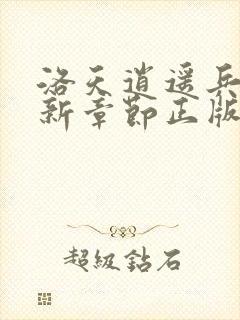 洛天逍遥兵
新章節正版
超級鉆石